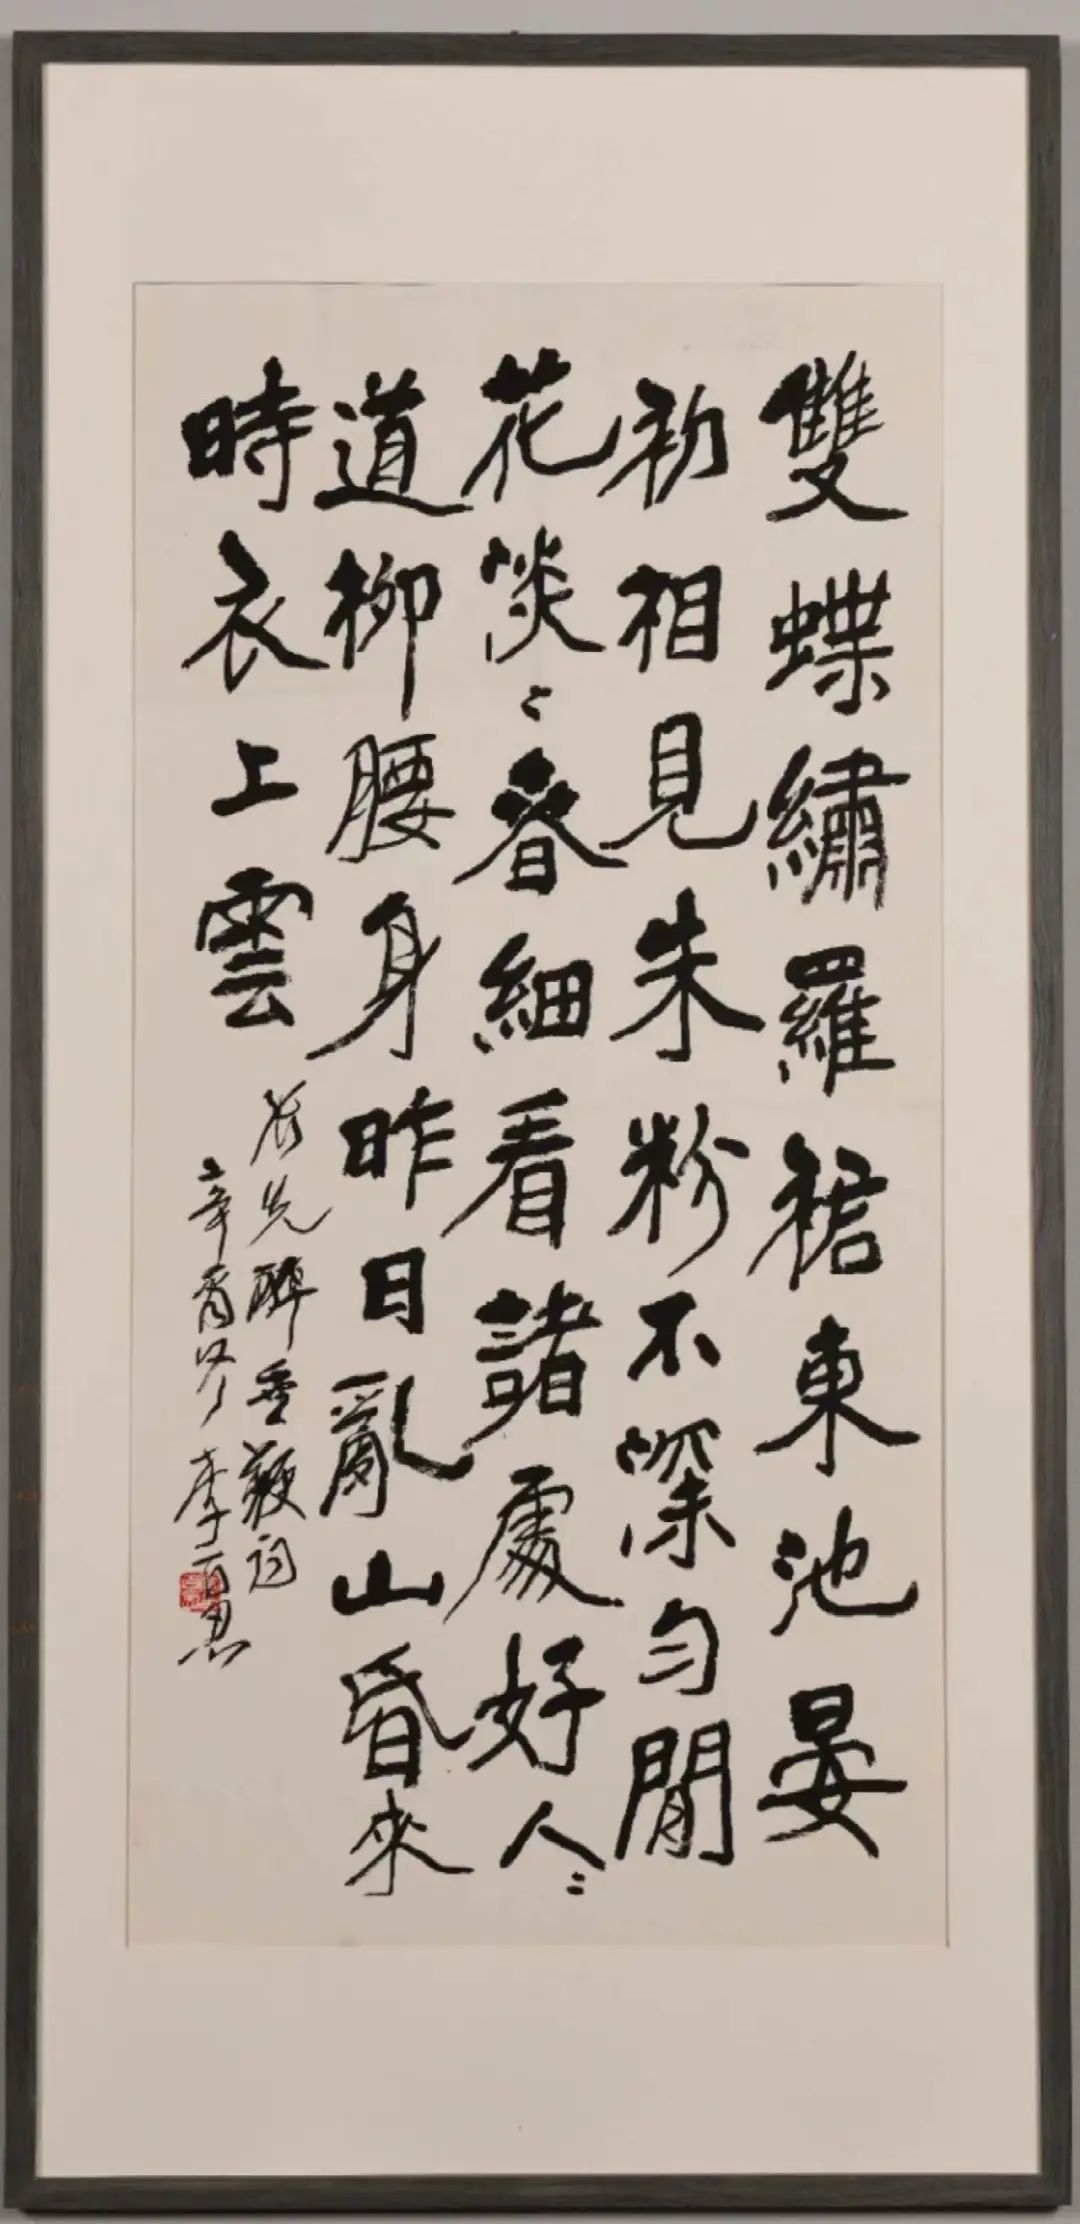 雙蝶繡羅裙東池宴
初相見朱粉不深勻閒
花淡〻春細看諸處好人〻
道柳腰身昨日亂山昏來
時衣上雲
張先醉垂鞭詞
辛酉 李百忍